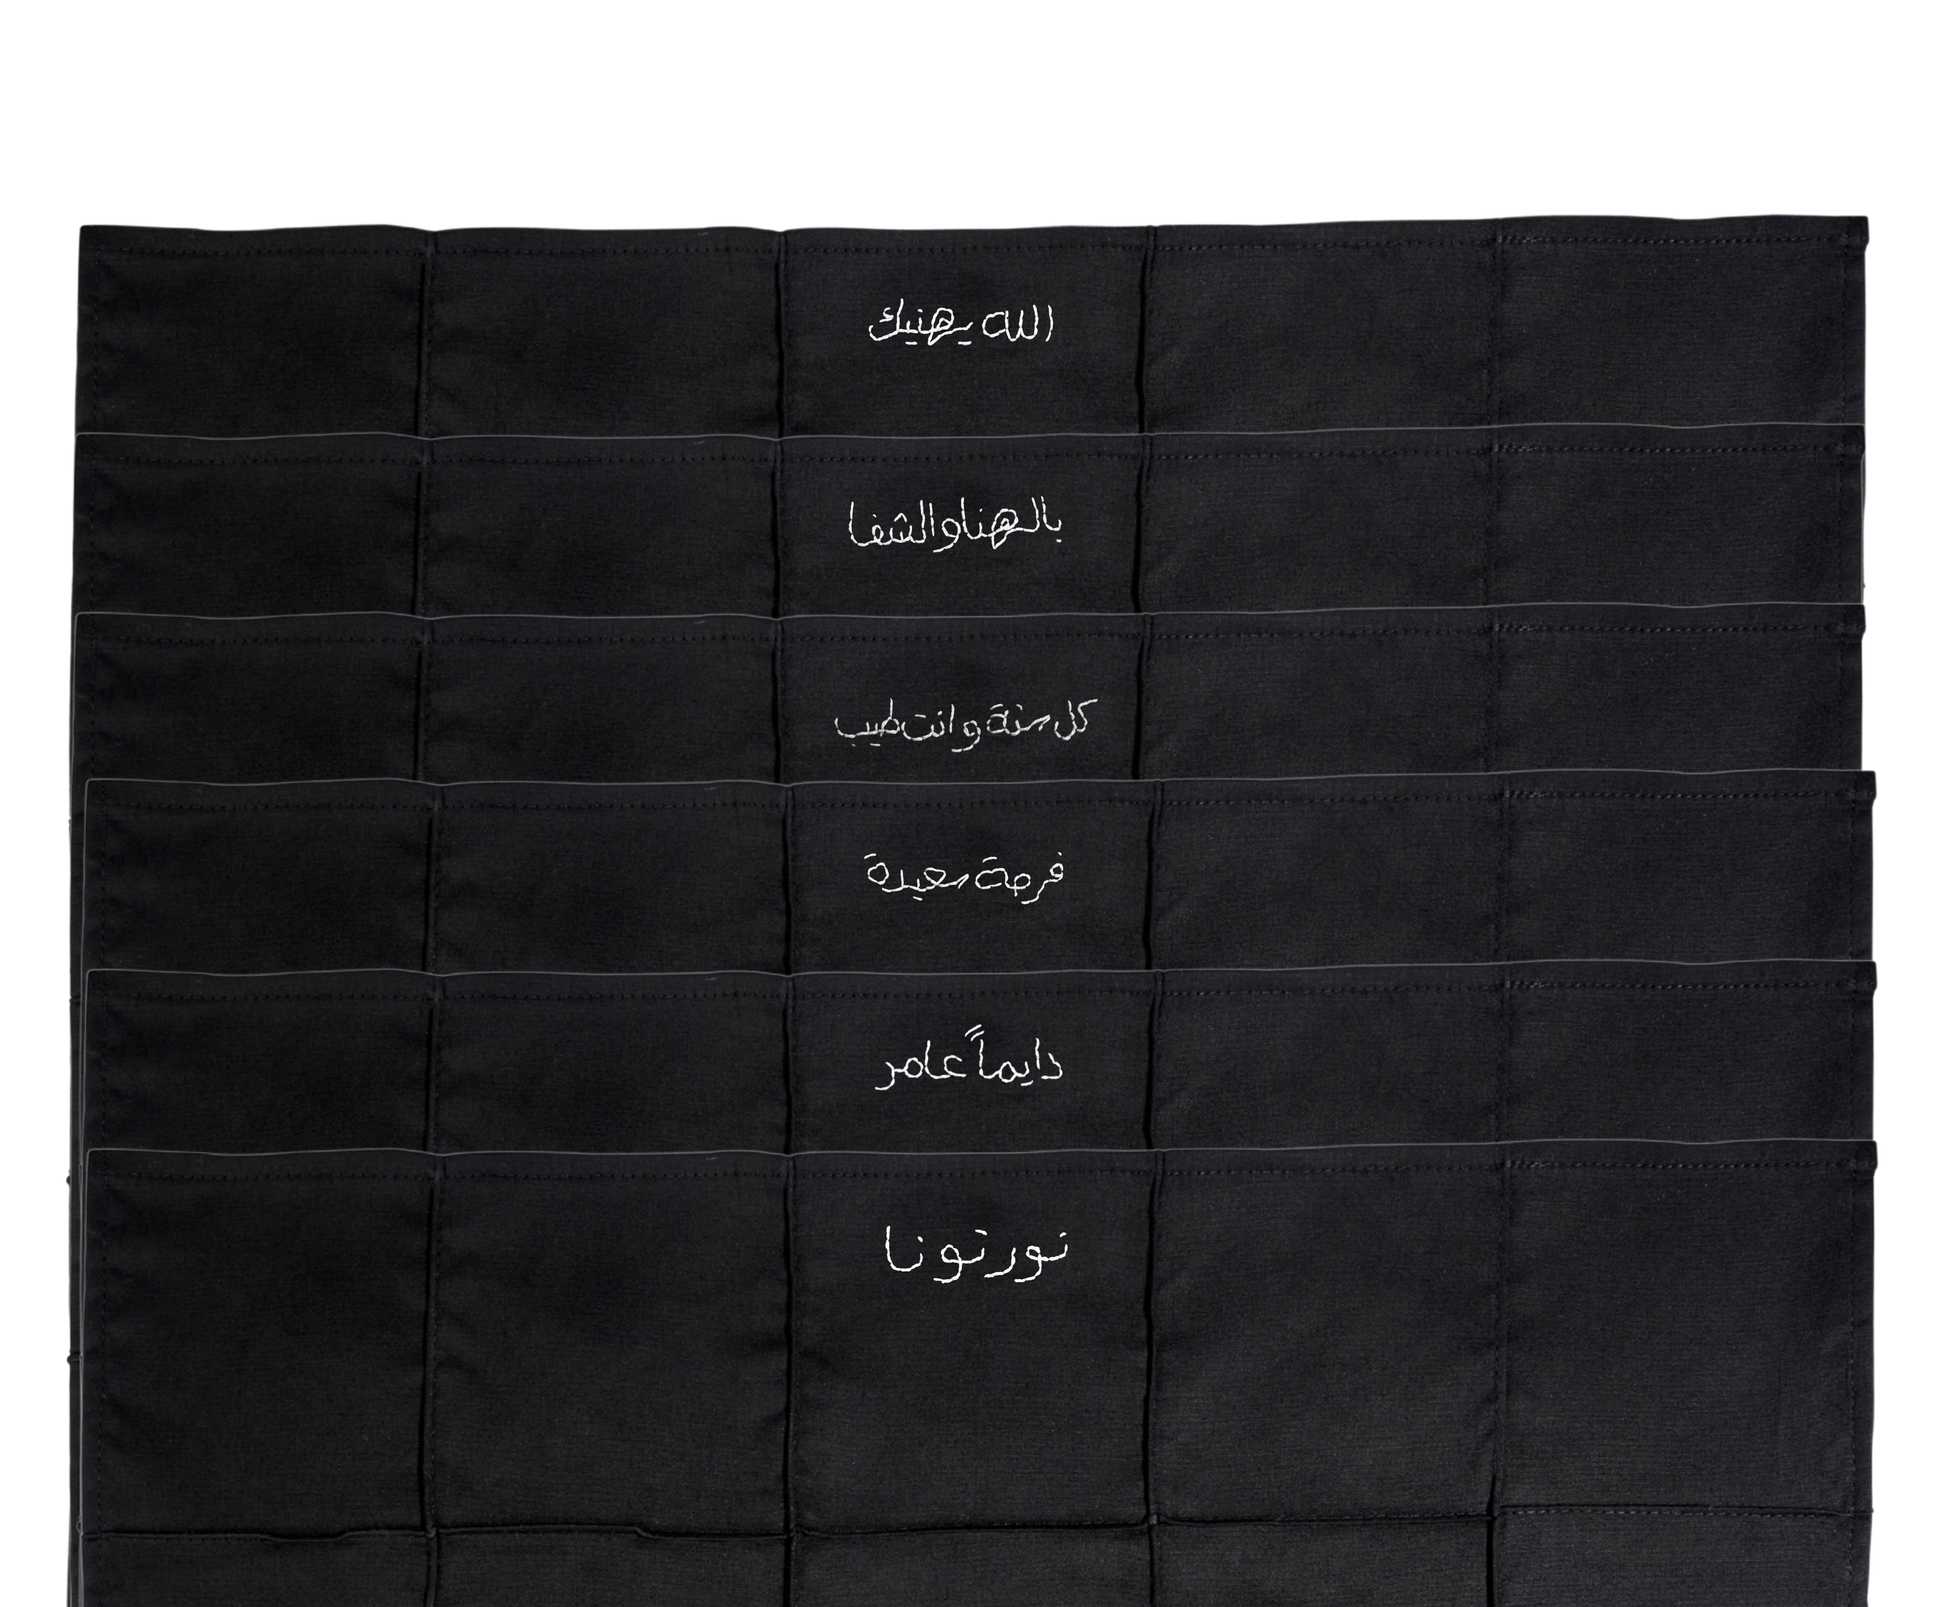 الله يهنيك
بالهنا والشفا
كل سنة وانت طيب
فرصة سعيدة
دايماً عامر
نورتونا